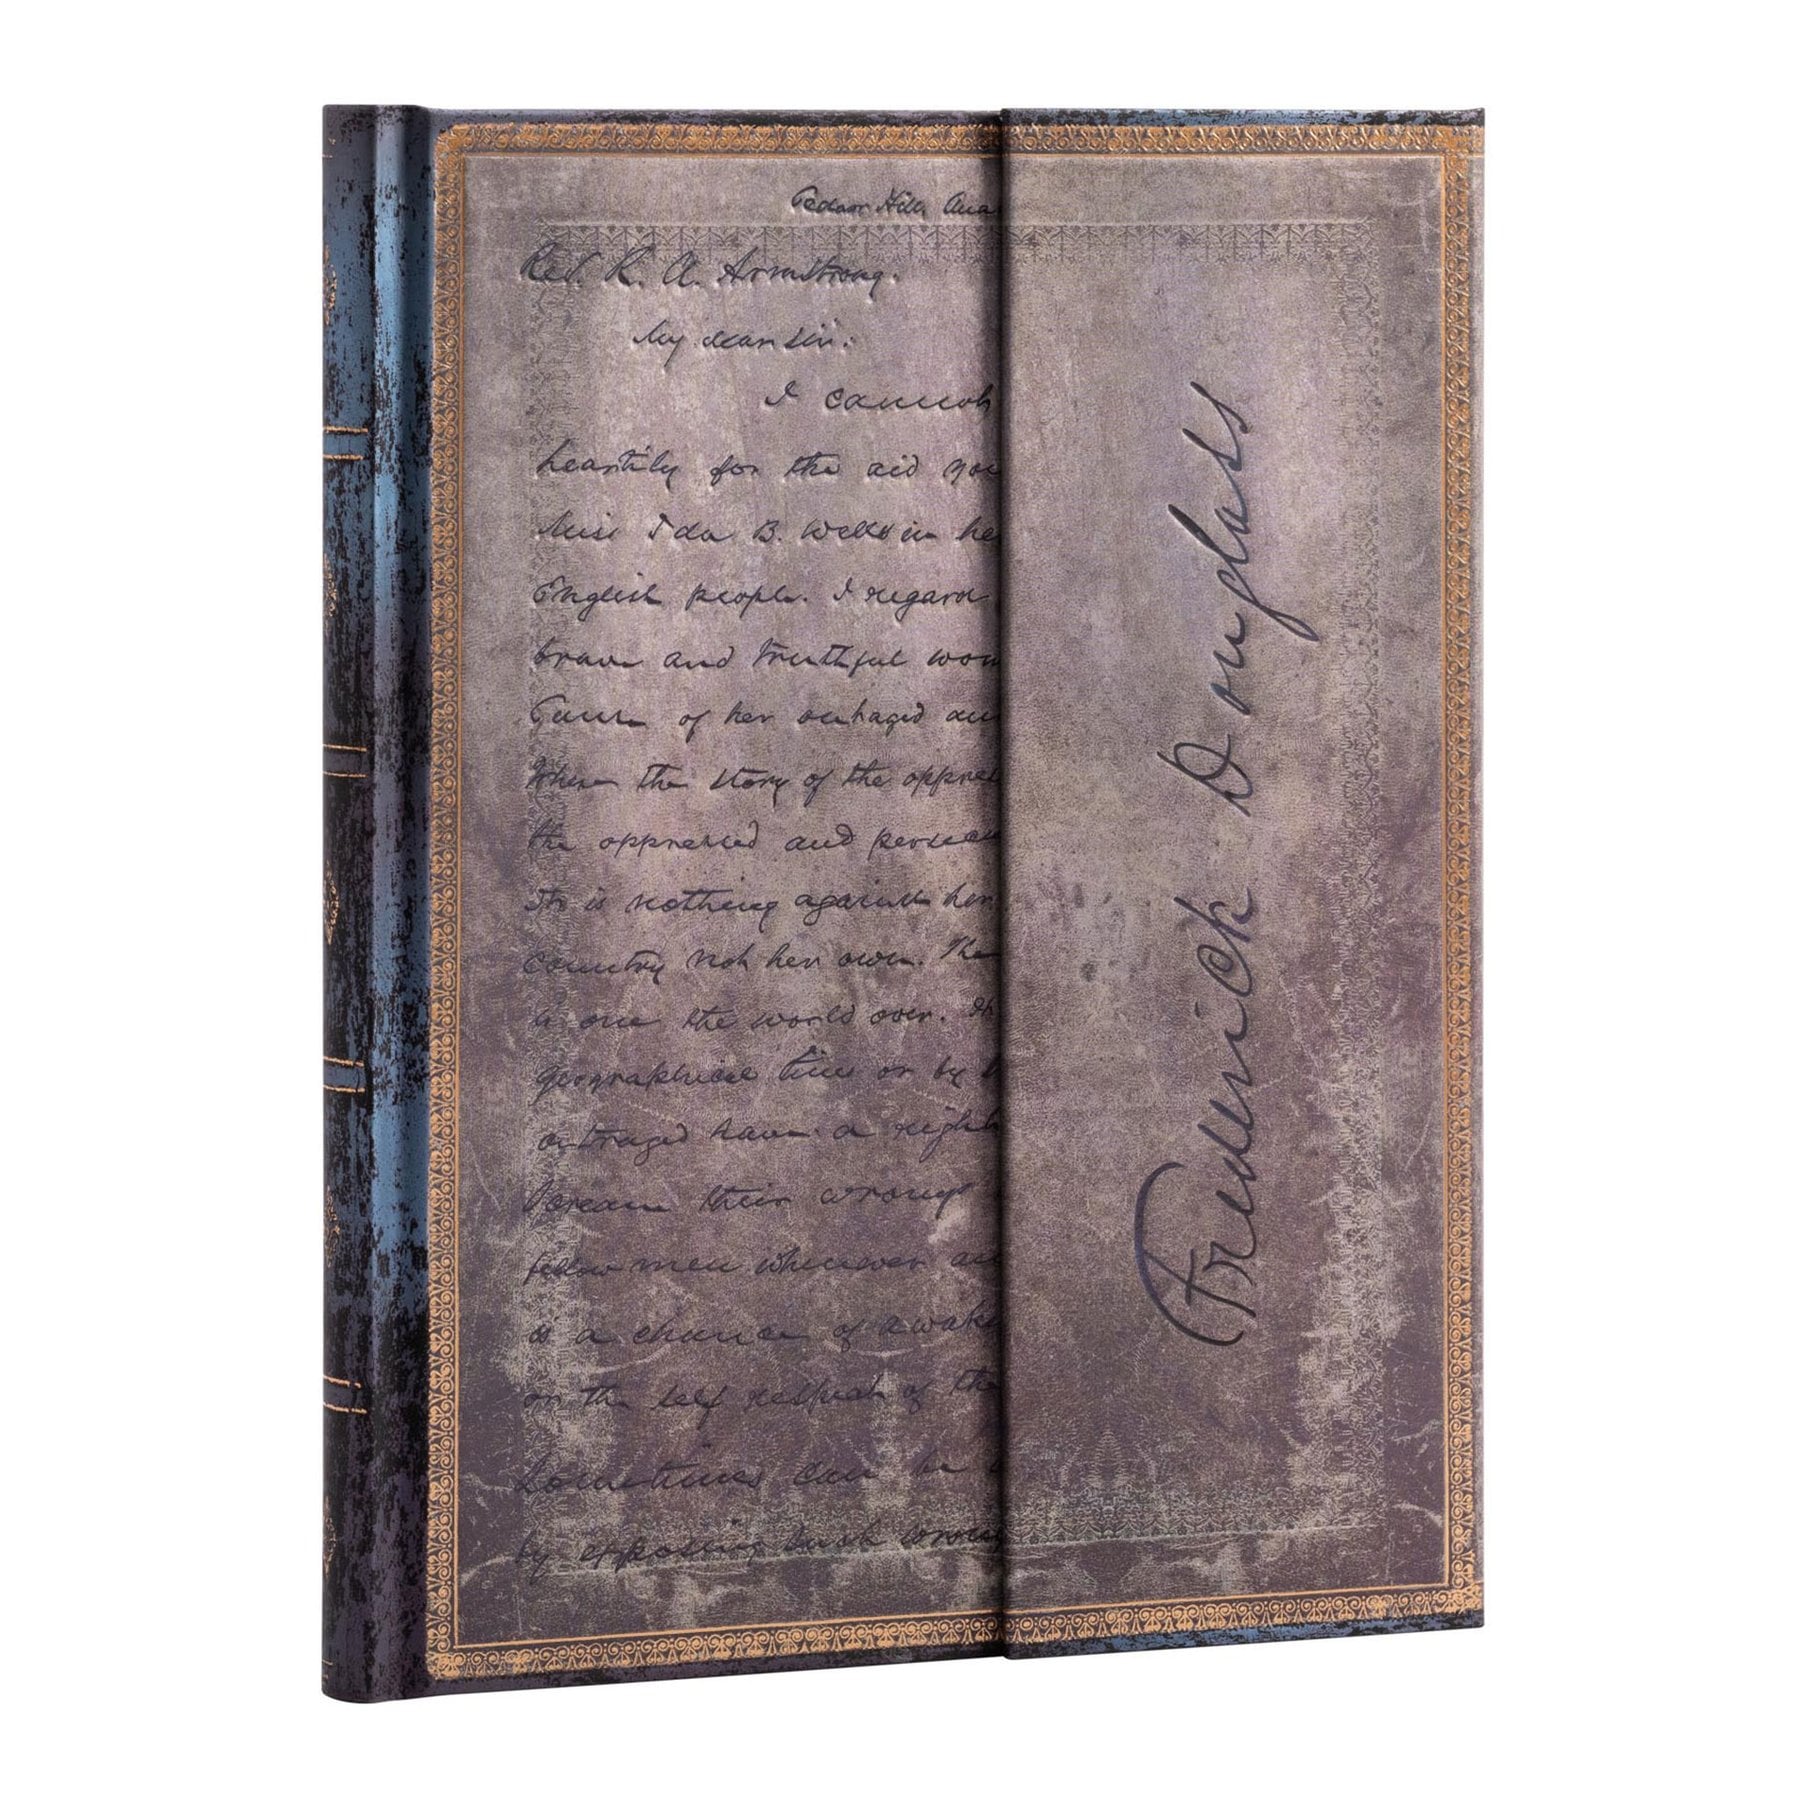 Cedar Hill, Ana
Rev. R. A. Armstrong.
My dear sir:
I cannot
heartily for the aid you
Miss Ida B. Wells in he
English people. I regard
brave and truthful wom
Cause of her outraged an
Where the story of the oppres
the oppressed and persecu
It is nothing against her
country not her own. The
is one the world over.
geographical lines or by
outraged have a right
scream their wrongs
fellow men wherever
is a chance of awake
on the self respect of the
Sometimes can be
by exposing such wrong
Frederick Douglass